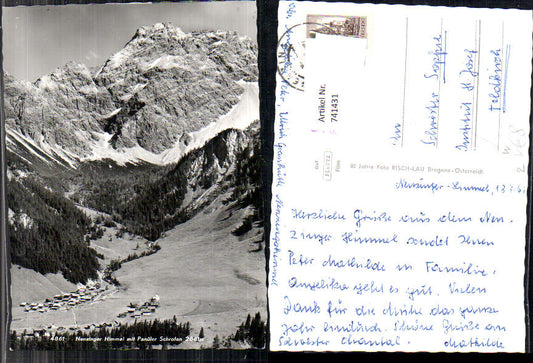 4861 Nenzinger Himmel mit Panüler Schrofen 2860m
Artikel Nr.
741431
80 Jahre Foto RISCH-LAU Bregenz-Österreich
Schwester
Institut St. Josef
Feldkirch
Nenzinger-Himmel, 13.
Herzliche Grüße aus dem Nen-
zinger Himmel sendet Ihnen
Peter Mathilde m Familie.
Angelika geht es gut. Vielen
Dank für die Mühe das ganze
Jahr hindurch. Schöne Grüße an
Schwester Chantal. Mathilde